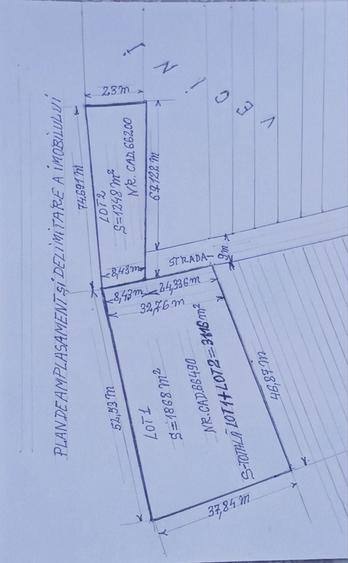 PLAN DE AMPLASAMENT ȘI DELIMITARE A IMOBILULUI
VECINI
23 m
74,691 m
LOT 2
S=1248 m²
NR. CAD. 66200
67,122 m
8,43 m
STRADA
9 m
8,43 m
24,336 m
32,76 m
52,53 m
LOT 1
S=1868 m²
NR. CAD. 66490
S-TOTALĂ LOT1+LOT2=3116 m²
46,87 m
37,84 m